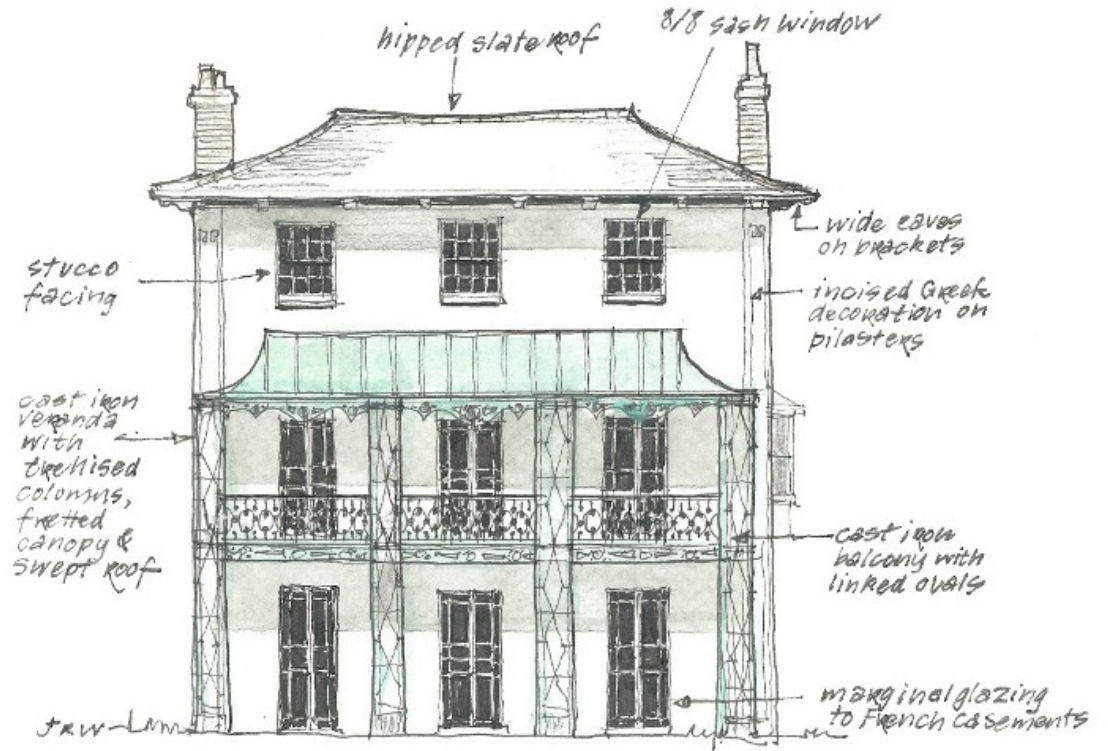 8/8 sash window
hipped slate roof
wide eaves
on brackets
stucco
facing
incised Greek
decoration on
pilasters
cast iron
veranda
with
trellised
columns,
fretted
canopy &
swept roof
cast iron
balcony with
linked ovals
marginal glazing
to French casements